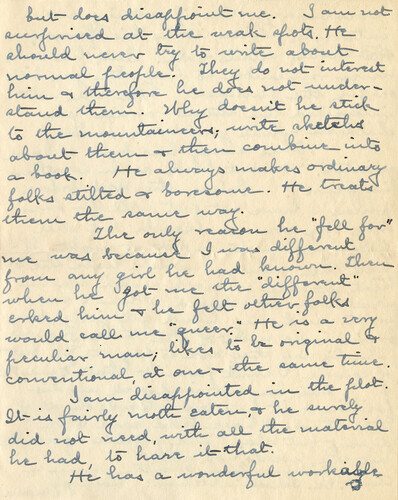 but does disappoint me. I am not
surprised at the weak spots. He
should never try to write about
normal people. They do not interest
him & therefore he does not under-
stand them. Why doesn't he stick
to the mountaineers; write sketchs
about them & then combine into
a book. He always makes ordinary
folks stilted & boresome. He treats
them the same way.
The only reason he "fell for"
me was because I was different
from any girl he had known. Then
when he got me the "different"
erked him & he felt other folks
would call me "queer." He is a very
peculiar man; likes to be original &
conventional, at one & the same time.
I am disappointed in the plot.
It is fairly moth eaten, & he surely
did not need, with all the material
he had, to have it that.
He has a wonderful workable